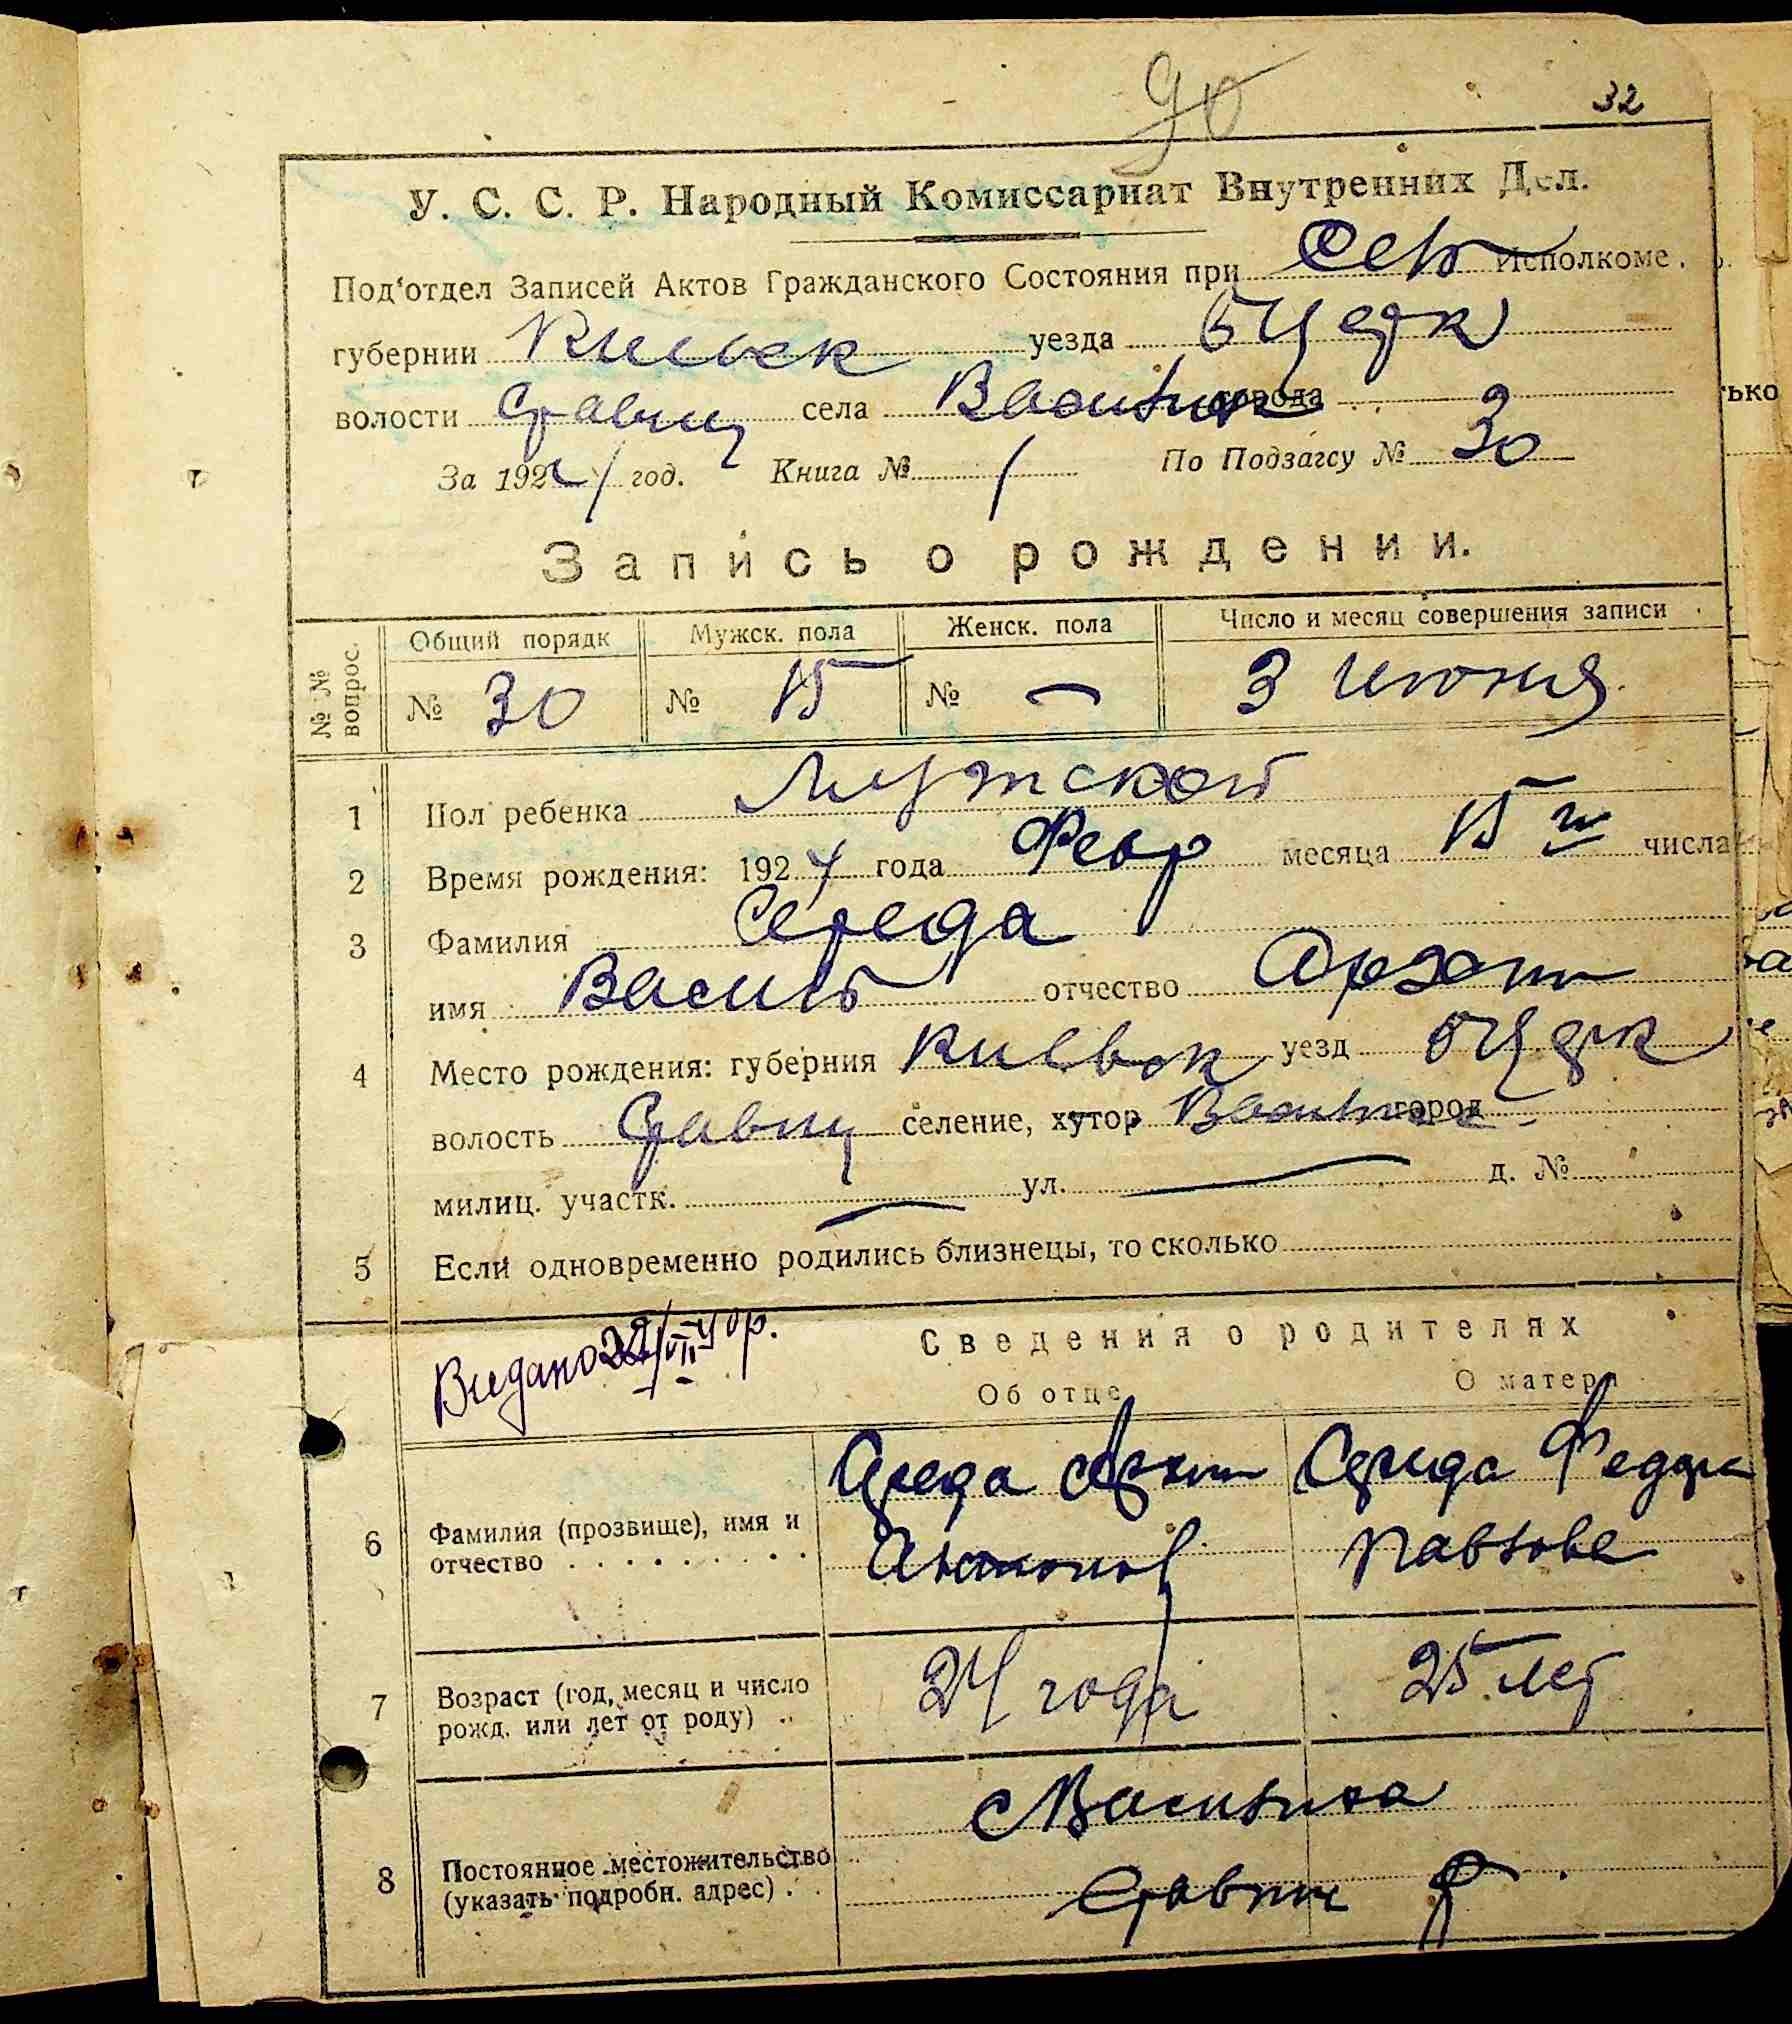 90
32
У. С. С. Р. Народный Комиссариат Внутренних Дел.
Под'отдел Записей Актов Гражданского Состояния при Исполкоме
губернии Киевск уезда БЦерк
волости села города
За 1924 год. Книга № 1 По Подзагсу № 30
Запись о рождении.
№№ вопрос. Общий порядк Мужск. пола Женск. пола Число и месяц совершения записи
№ 30 № 15 № — 3 июня
1 Пол ребенка Мужской
2 Время рождения: 1924 года Февр месяца 15 го числа
3 Фамилия Середа
имя Василь отчество
4 Место рождения: губерния Киевск уезд БЦерк
волость селение, хутор город
милиц. участк. — ул. — д. №
5 Если одновременно родились близнецы, то сколько
Видано 22/VII 40р.
Сведения о родителях
Об отце О матери
6 Фамилия (прозвище), имя и отчество
Середа Архип Антонов
Середа Федора Павлова
7 Возраст (год, месяц и число рожд. или лет от роду) 24 года 25 лет
8 Постоянное местожительство (указать подробн. адрес)